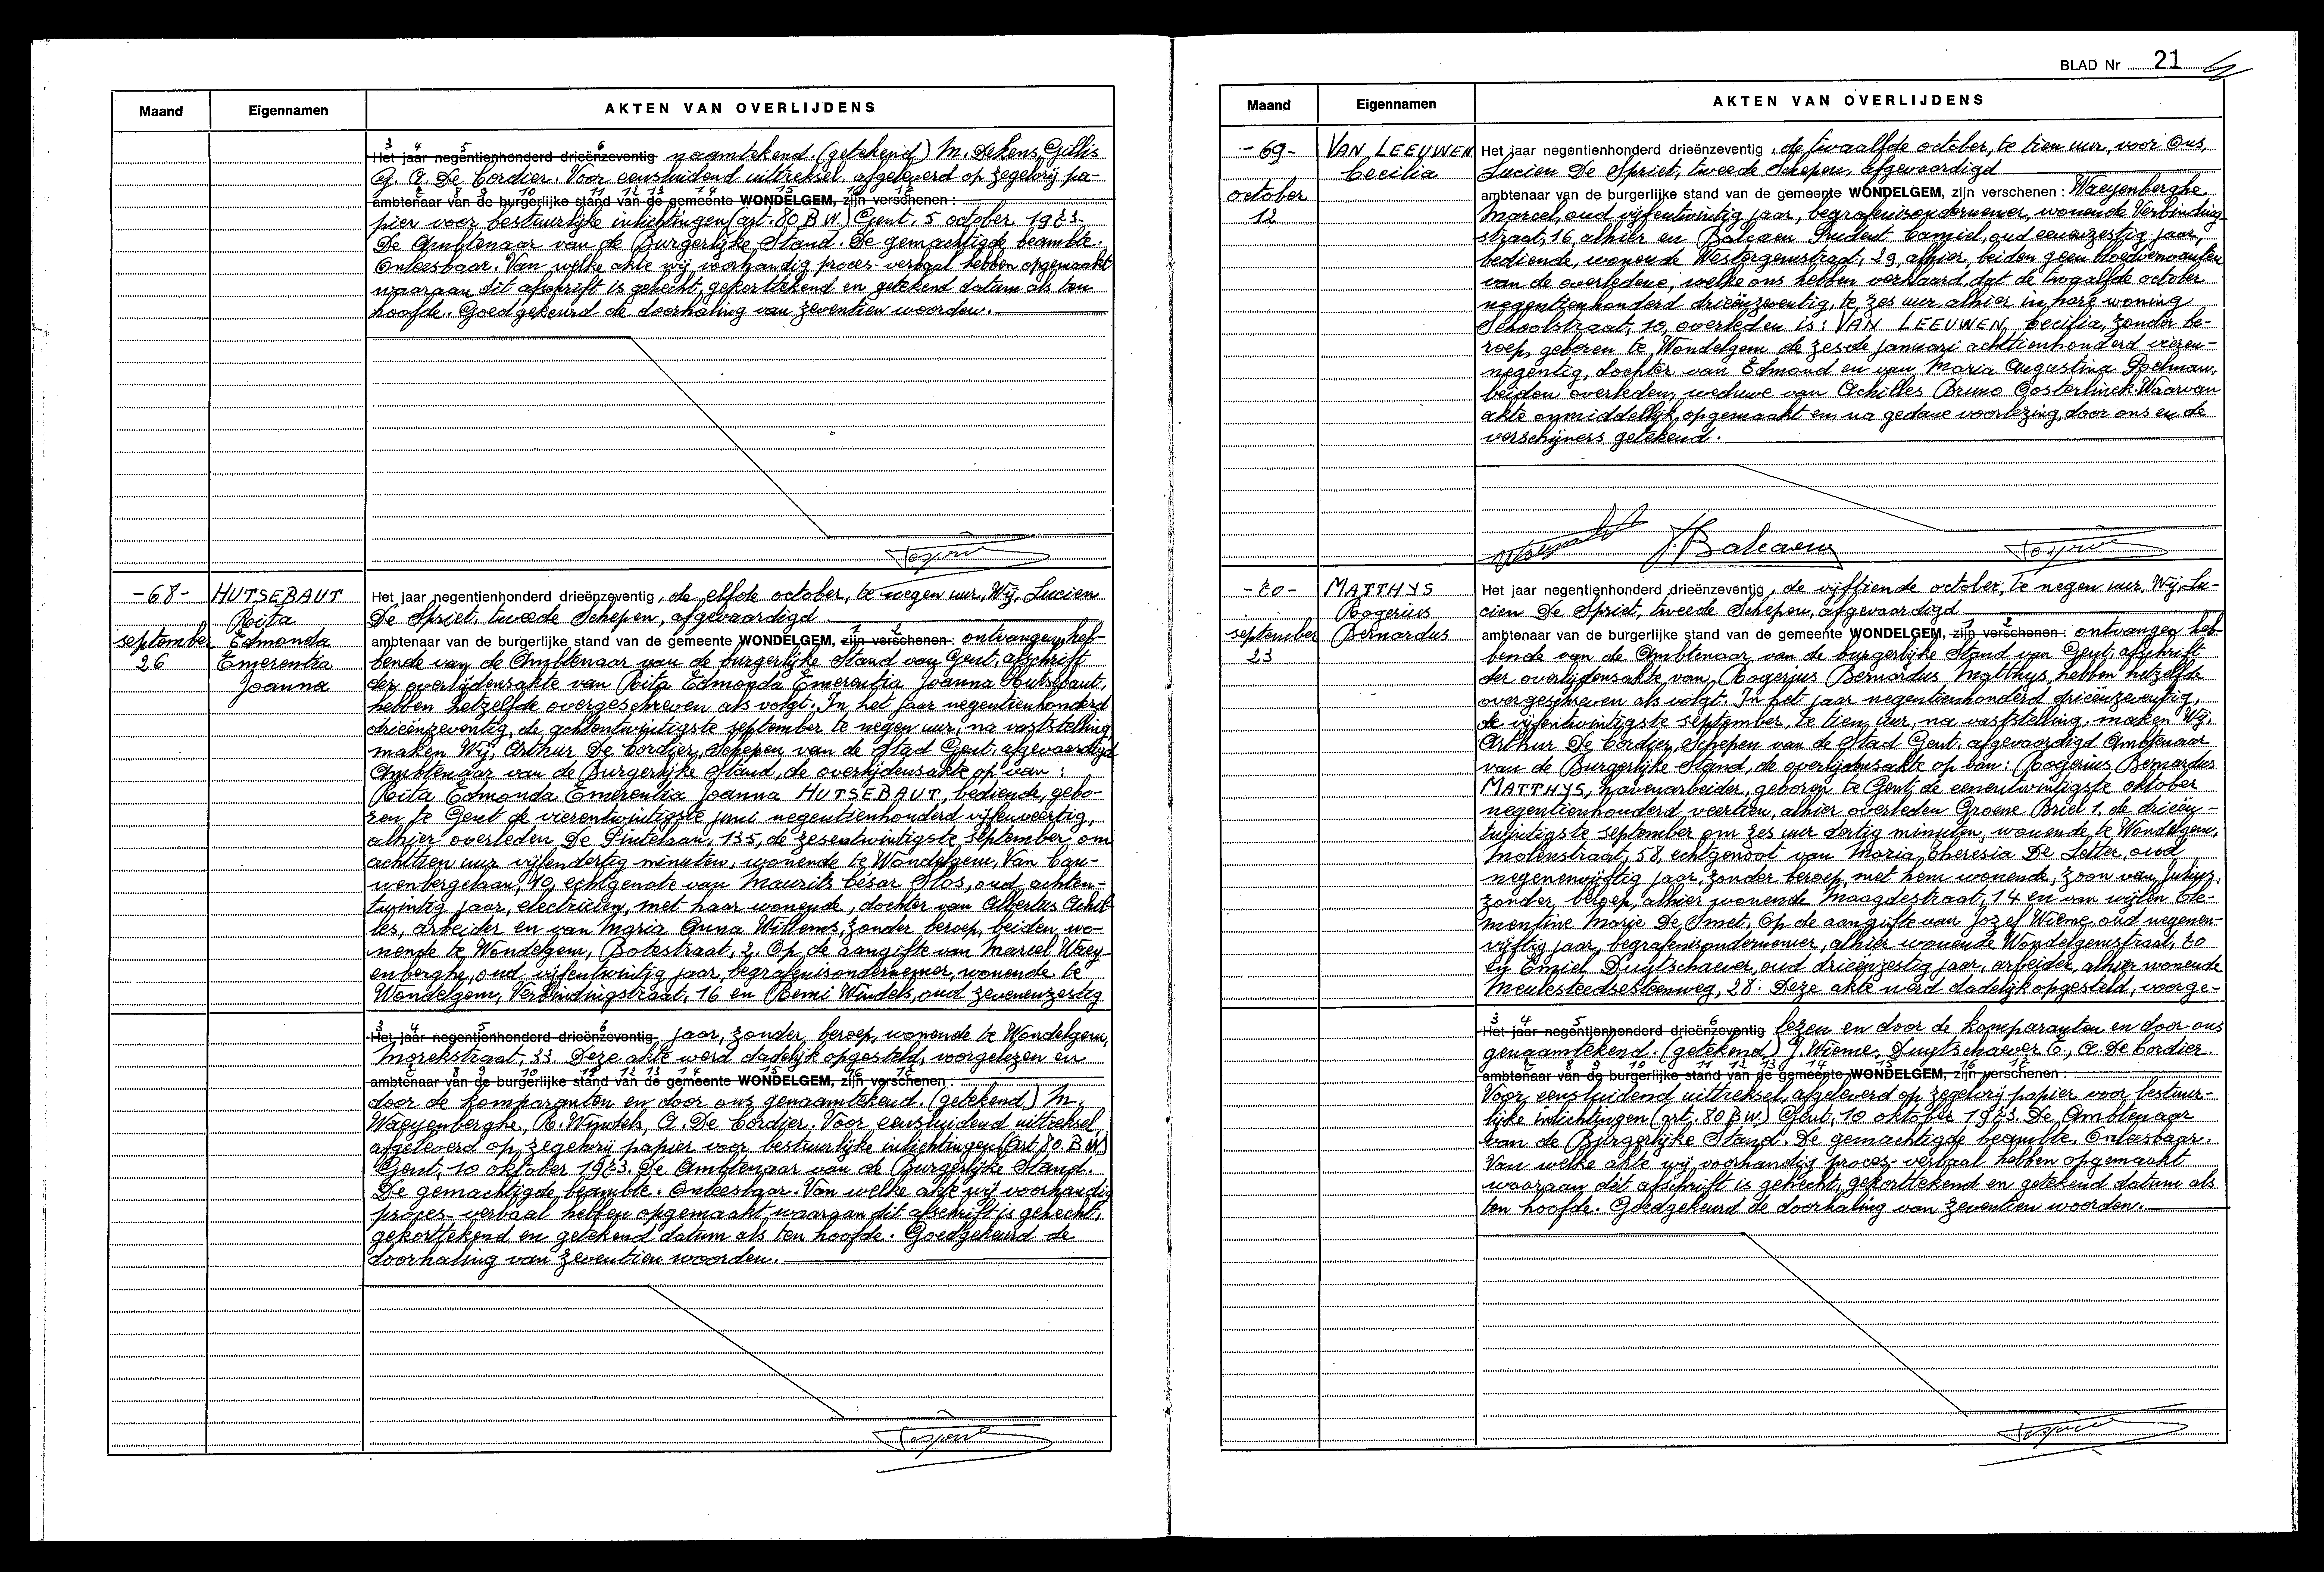 Maand Eigennamen AKTEN VAN OVERLIJDENS
3 4 5 6
Het jaar negentienhonderd drieënzeventig naamtekend. (getekend) M. Dekens, Gillis
G. A. De Cordier. Voor eensluidend uittreksel, afgeleverd op zegelvrij pa-
7 8 9 10 11 12 13 14 15 16 17
ambtenaar van de burgerlijke stand van de gemeente WONDELGEM, zijn verschenen :
pier voor bestuurlijke inlichtingen (art. 80 B.W.) Gent, 5 october 1973.
De Ambtenaar van de Burgerlijke Stand. De gemachtigde beambte.
Onleesbaar. Van welke akte wij voorhandig proces-verbaal hebben opgemaakt
waaraan dit afschrift is gehecht, gekorttekend en getekend datum als ten
hoofde. Goedgekeurd de doorhaling van zeventien woorden.
-68-
september
26
HUTSEBAUT
Rita
Edmonda
Emerentia
Joanna
Het jaar negentienhonderd drieënzeventig, de elfde october, te negen uur, Wij, Lucien
De Spriet, tweede Schepen, afgevaardigd
1 2
ambtenaar van de burgerlijke stand van de gemeente WONDELGEM, zijn verschenen : ontvangen heb-
bende van de Ambtenaar van de burgerlijke Stand van Gent, afschrift
der overlijdensakte van Rita Edmonda Emerentia Joanna Hutsebaut,
hebben hetzelfde overgeschreven als volgt: In het jaar negentienhonderd
drieënzeventig, de achtentwintigste september te negen uur, na vaststelling
maken Wij, Arthur De Cordier, Schepen van de Stad Gent, afgevaardigd
Ambtenaar van de Burgerlijke Stand, de overlijdensakte op van :
Rita Edmonda Emerentia Joanna HUTSEBAUT, bediende, gebo-
ren te Gent de vierentwintigste juni negentienhonderd vijfenveertig,
alhier overleden De Pintelaan, 135, de zesentwintigste september om
achttien uur vijfendertig minuten, wonende te Wondelgem, Van Cau-
wenbergelaan, 40, echtgenote van Maurits César Slos, oud achten-
twintig jaar, electricien, met haar wonende, dochter van Albertus Achil-
les, arbeider en van Maria Anna Willems, zonder beroep, beiden wo-
nende te Wondelgem, Botestraat, 2. Op de aangifte van Marcel Waey-
enberghe, oud vijfentwintig jaar, begrafenisondernemer, wonende te
Wondelgem, Verbindingstraat, 16 en Remi Windels, oud zevenenzestig
3 4 5 6
Het jaar negentienhonderd drieënzeventig jaar, zonder beroep, wonende te Wondelgem,
Morekstraat, 33. Deze akte werd dadelijk opgesteld, voorgelezen en
7 8 9 10 11 12 13 14 15 16 17
ambtenaar van de burgerlijke stand van de gemeente WONDELGEM, zijn verschenen :
door de komparanten en door ons genaamtekend. (getekend) M.
Waeyenberghe, R. Windels, A. De Cordier. Voor eensluidend uittreksel,
afgeleverd op zegelvrij papier voor bestuurlijke inlichtingen (Art. 80. B.W.)
Gent, 10 oktober 1973. De Ambtenaar van de Burgerlijke Stand.
De gemachtigde beambte. Onleesbaar. Van welke akte wij voorhandig
proces-verbaal hebben opgemaakt waaraan dit afschrift is gehecht,
gekorttekend en getekend datum als ten hoofde. Goedgekeurd de
doorhaling van zeventien woorden.
BLAD Nr 21
Maand Eigennamen AKTEN VAN OVERLIJDENS
-69-
october
12
VAN LEEUWEN
Cecilia
Het jaar negentienhonderd drieënzeventig, de twaalfde october, te tien uur, voor Ons,
Lucien De Spriet, tweede Schepen, afgevaardigd
ambtenaar van de burgerlijke stand van de gemeente WONDELGEM, zijn verschenen : Waeyenberghe
Marcel, oud vijfentwintig jaar, begrafenisondernemer, wonende Verbinding
straat, 16 alhier en Balcaen Prudent Camiel, oud eenenzestig jaar,
bediende, wonende Westergemstraat, 29, alhier, beiden geen bloedverwanten
van de overledene, welke ons hebben verklaard dat de twaalfde october
negentienhonderd drieënzeventig, te zes uur alhier in hare woning
Schoolstraat, 10, overleden is : VAN LEEUWEN, Cecilia, zonder be-
roep, geboren te Wondelgem de zesde januari achttienhonderd vieren-
negentig, dochter van Edmond en van Maria Augustina Poelman,
beiden overleden, weduwe van Achilles Bruno Oosterlinck. Waarvan
akte onmiddellijk opgemaakt en na gedane voorlezing, door ons en de
verschijners getekend.
Balcaen
-70-
september
23
MATTHYS
Rogerius
Bernardus
Het jaar negentienhonderd drieënzeventig, de vijftiende october, te negen uur, Wij, Lu-
cien De Spriet, tweede Schepen, afgevaardigd
1 2
ambtenaar van de burgerlijke stand van de gemeente WONDELGEM, zijn verschenen : ontvangen heb-
bende van de Ambtenaar van de burgerlijke Stand van Gent, afschrift
der overlijdensakte van Rogerius Bernardus Matthys, hebben hetzelfde
overgeschreven als volgt. In het jaar negentienhonderd drieënzeventig,
de vijfentwintigste september, te tien uur, na vaststelling, maken Wij,
Arthur De Cordier, Schepen van de Stad Gent, afgevaardigd Ambtenaar
van de Burgerlijke Stand, de overlijdensakte op van : Rogerius Bernardus
MATTHYS, havenarbeider, geboren te Gent, de eenentwintigste oktober
negentienhonderd veertien, alhier overleden Groene Briel 1, de drieën-
twintigste september om zes uur dertig minuten, wonende te Wondelgem,
Molenstraat, 58, echtgenoot van Maria Theresia De Letter, oud
negenenvijftig jaar, zonder beroep, met hem wonende, zoon van Julius,
zonder beroep, alhier wonende Maagdestraat, 14 en van wijlen Cle-
mentine Marie De Smet. Op de aangifte van Jozef Wieme, oud negenen-
vijftig jaar, begrafenisondernemer, alhier wonende Wondelgemstraat, 70
en Emiel Duytschaever, oud drieënzestig jaar, arbeider, alhier wonende
Meulesteedsesteenweg, 28. Deze akte werd dadelijk opgesteld, voorge-
3 4 5 6
Het jaar negentienhonderd drieënzeventig lezen en door de komparanten en door ons
genaamtekend. (getekend) J. Wieme, Duytschaever E., A. De Cordier.
7 8 9 10 11 12 13 14 15 16 17
ambtenaar van de burgerlijke stand van de gemeente WONDELGEM, zijn verschenen :
Voor eensluidend uittreksel, afgeleverd op zegelvrij papier voor bestuur-
lijke inlichtingen (art. 80 B.W.) Gent, 10 oktober 1973. De Ambtenaar
van de Burgerlijke Stand. De gemachtigde beambte. Onleesbaar.
Van welke akte wij voorhandig proces-verbaal hebben opgemaakt
waaraan dit afschrift is gehecht, gekorttekend en getekend datum als
ten hoofde. Goedgekeurd de doorhaling van zeventien woorden.